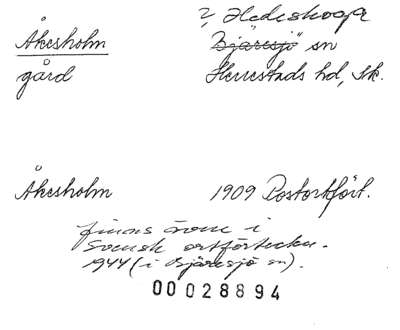 ? Hedeskoga
Åkesholm Bjäresjö sn
gård Herrestads hd, Sk.
Åkesholm 1909 Postortsfört.
finns även i
Svensk ortförteckn.
1944 (i Bjäresjö sn).
00028894